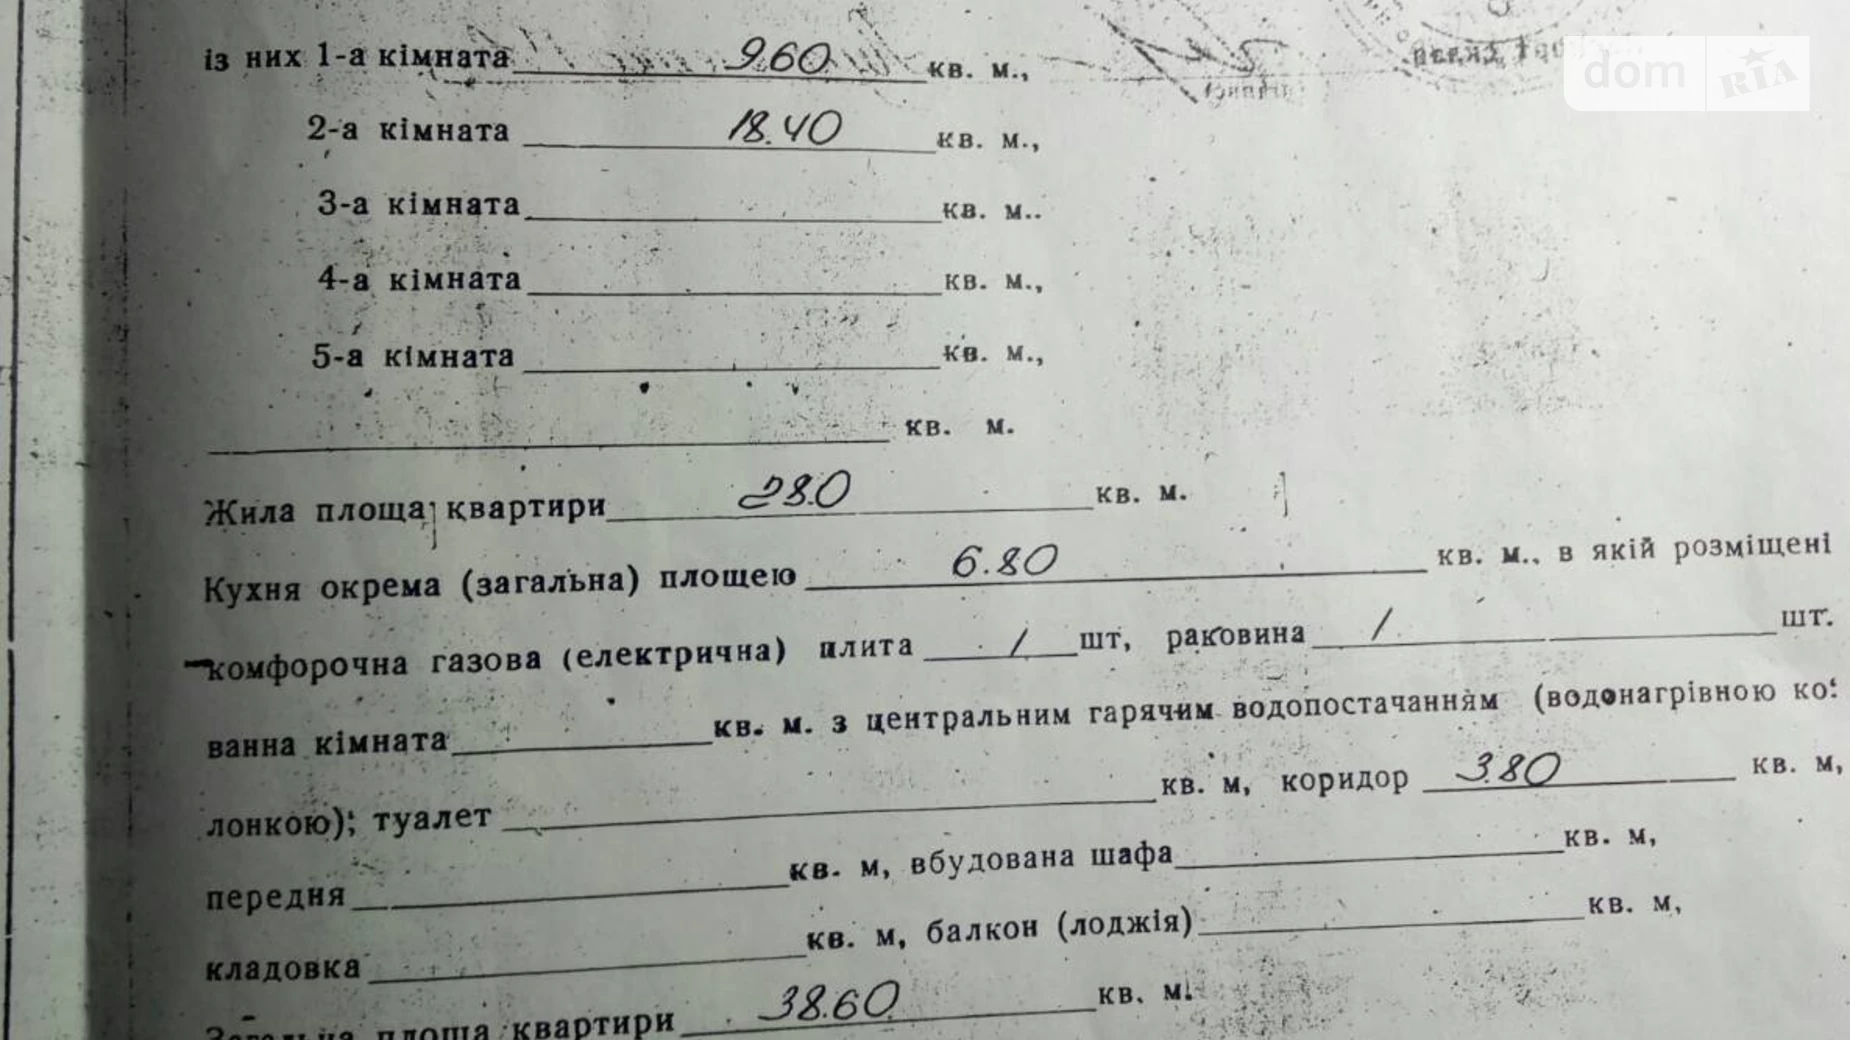 із них 1-а кімната 9.60 кв. м.,
dom RIA
2-а кімната 18.40 кв. м.,
3-а кімната кв. м..
4-а кімната кв. м.,
5-а кімната кв. м.,
кв. м.
Жила площа квартири 28.0 кв. м.
Кухня окрема (загальна) площею 6.80 кв. м., в якій розміщені
комфорочна газова (електрична) плита 1 шт, раковина 1 шт.
ванна кімната кв. м. з центральним гарячим водопостачанням (водонагрівною ко-
лонкою); туалет кв. м, коридор 3.80 кв. м,
передня кв. м, вбудована шафа кв. м,
кладовка кв. м, балкон (лоджія) кв. м,
Загальна площа квартири 38.60 кв. м.